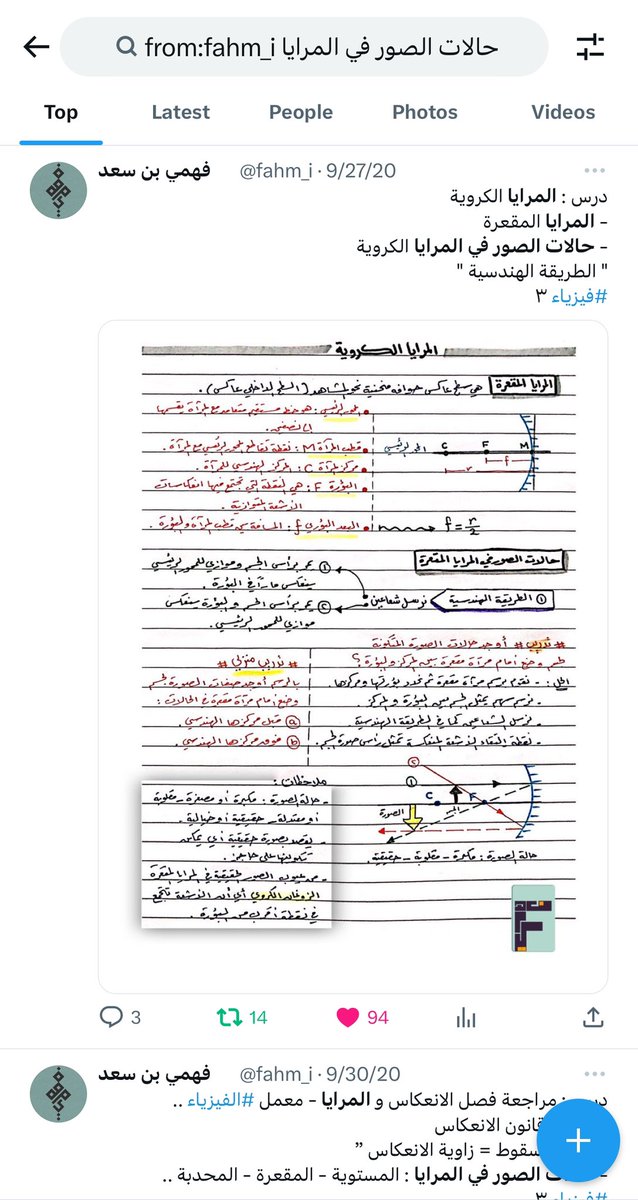 حالات الصور في المرايا from:fahm_i
Top Latest People Photos Videos
فهمي بن سعد @fahm_i · 9/27/20
درس : المرايا الكروية
- المرايا المقعرة
- حالات الصور في المرايا الكروية
" الطريقة الهندسية "
#فيزياء ٣
المرايا الكروية
المرايا المقعرة هي سطح عاكس حوافه منحنية نحو المشاهد (السطح الداخلي عاكس).
المحور الرئيسي : هو خط مستقيم متعامد مع المرآة يقسمها
إلى نصفين.
قطب المرآة M : نقطة تقاطع المحور الرئيسي مع المرآة.
مركز المرآة C : المركز الهندسي للمرآة.
البؤرة F : هي النقطة التي تتجمع فيها انعكاسات
الأشعة المتوازية.
البعد البؤري f : المسافة بين قطب المرآة والبؤرة.
f = r/2
المحور الرئيسي C F M
f
r
حالات الصور في المرايا المقعرة
① الطريقة الهندسية نرسل شعاعين
① يمر برأس الجسم وموازي للمحور الرئيسي
ينعكس مارًا في البؤرة.
② يمر برأس الجسم والبؤرة سينعكس
موازي للمحور الرئيسي.
# تدريب # أوجد حالات الصورة المتكونة
لجسم وضع أمام مرآة مقعرة بين المركز والبؤرة؟
الحل : - نقوم برسم مرآة مقعرة ثم نحدد بؤرتها ومركزها.
- نرسم سهم يمثل الجسم بين البؤرة والمركز.
- نرسل الشعاعين كما في الطريقة الهندسية.
- نقطة التقاء الأشعة المنعكسة تمثل رأس صورة الجسم.
# تدريب منزلي #
بالرسم أوجد صفات الصورة لجسم
وضع أمام مرآة مقعرة في الحالات :
ⓐ قبل مركزها الهندسي.
ⓑ فوق مركزها الهندسي.
② ① C F
الجسم
الصورة
حالة الصورة : مكبرة - مقلوبة - حقيقية.
ملاحظات :
- حالة الصورة : مكبرة أو مصغرة - مقلوبة
أو معتدلة - حقيقية أو خيالية.
- يقصد بصورة حقيقية أي يمكن
تكوينها على حاجز.
- من عيوب الصور الحقيقية في المرايا المقعرة
الزوغان الكروي أي أن الأشعة تتجمع
في نقطة أقرب من البؤرة.
3 14 94
فهمي بن سعد @fahm_i · 9/30/20
مراجعة فصل الانعكاس و المرايا - معمل #الفيزياء ..
قانون الانعكاس
= زاوية الانعكاس ”
الصور في المرايا : المستوية - المقعرة - المحدبة ..